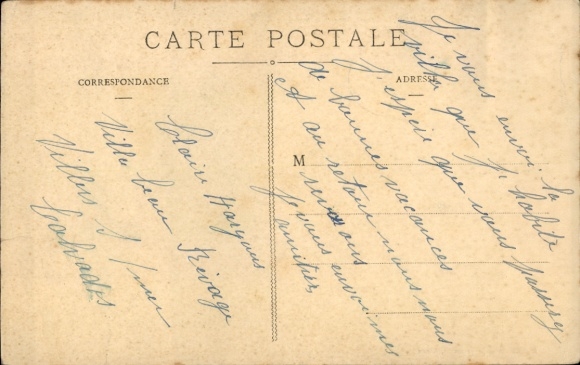 CARTE POSTALE
CORRESPONDANCE
ADRESSE
M
Je vous envoi la
ville que J'habite
J'espère que vous passerez
de bonnes vacances
et au retour nous nous
reverrons
Je vous envoi mes
amitiés
Claire
Villa beau Rivage
Villers S/mer
Calvados